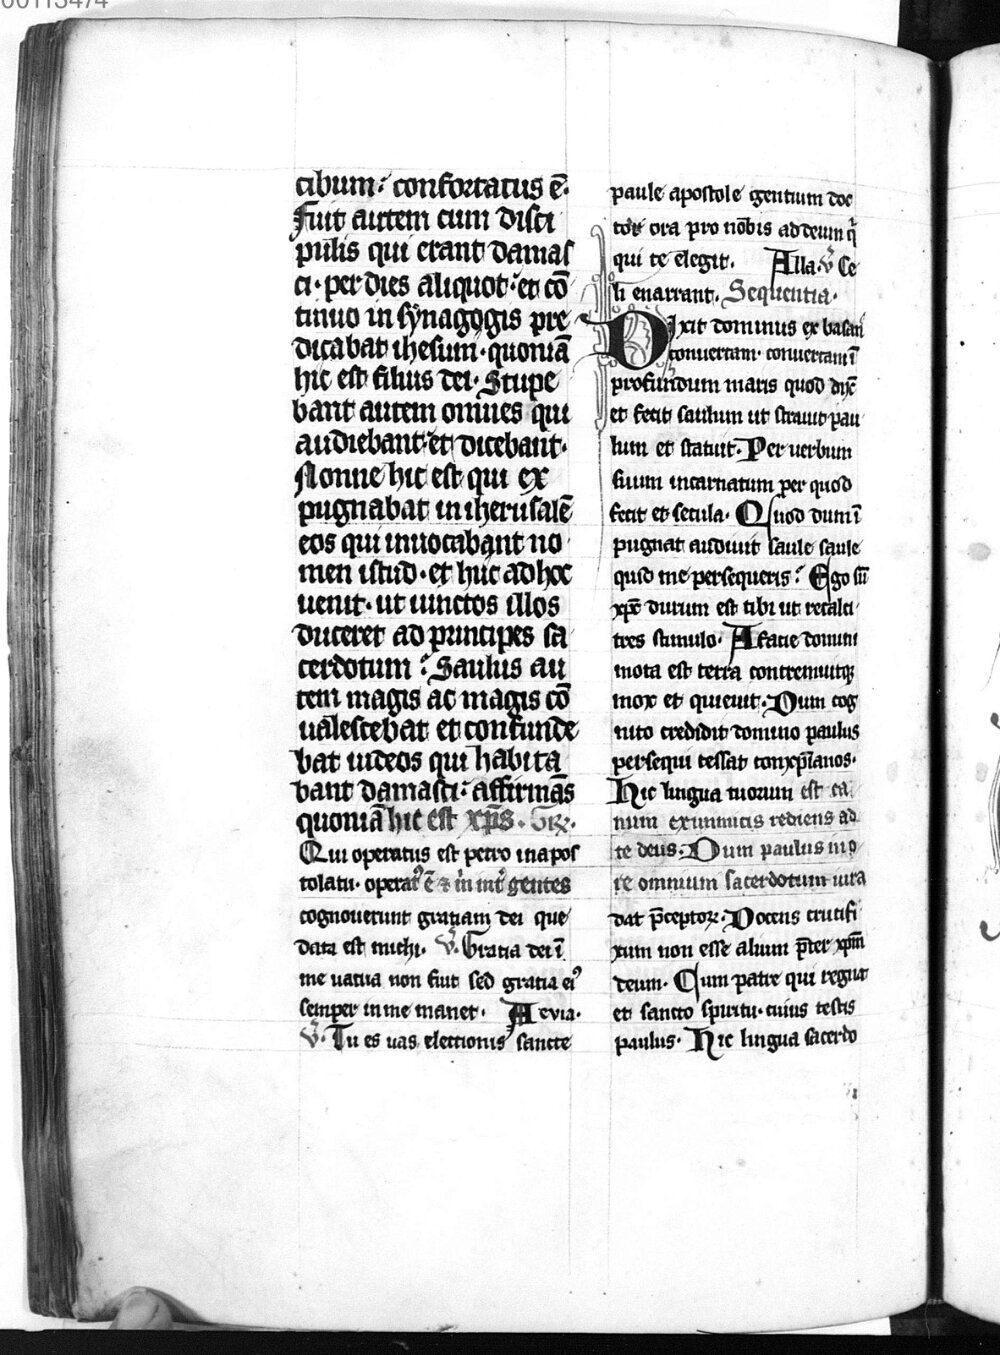 00113474
cibum· confortatus ē·
Fuit autem cum disci
pulis qui erant damas
ci· per dies aliquot· et cō
tinuo in synagogis pre
dicabat ihesum· quoniā
hic est filius dei· Stupe
bant autem omnes qui
audiebant· et dicebant·
Nonne hic est qui ex
pugnabat in iherusalē
eos qui inuocabant no
men istud· et huc ad hoc
uenit· ut uinctos illos
duceret ad principes sa
cerdotum? Saulus au
tem magis ac magis cō
ualescebat et confunde
bat iudeos qui habita
bant damasci· affirmās
quoniā hic est xp̄s· Gr̄·
Qui operatus est petro in apos
tolatu· operat᷒ ē et m̄ int̄ gentes
cognouerunt gratiam dei que
data est michi· v̄· Gratia dei ī
me uacua non fuit sed gratia ei᷒
semper in me manet· Aeuia·
v̄· Tu es uas electionis sancte
paule apostole gentium doc
tor ora pro nobis ad deum q̄
qui te elegit· Alla· v̄ Ce
li enarrant· Sequentia·
Dixit dominus ex basan
conuertam· conuertam ī
profundum maris quod dix̄
et fecit saulum ut strauit pau
lum et statuit· Per uerbum
suum incarnatum per quod
fecit et secula· Quod dum ī
pugnat audiuit saule saule
quid me persequeris? Ego sū
xp̄c durum est tibi ut recalci
tres stimulo· A facie domini
mota est terra contremuitqꝫ
mox et quieuit· Dum cog
nito credidit domino paulus
persequi cessat conxp̄ianos·
Hic lingua tuorum est ca
num ex inimicis rediens ad
te deus· Dum paulus in o
re omnium sacerdotum iura
dat p̄ceptoꝝ· Docens crucifi
xum non esse alium p̄ter xpm̄
deum· Cum patre qui regnat
et sancto spiritu· cuius testis
paulus· Hic lingua sacerdo